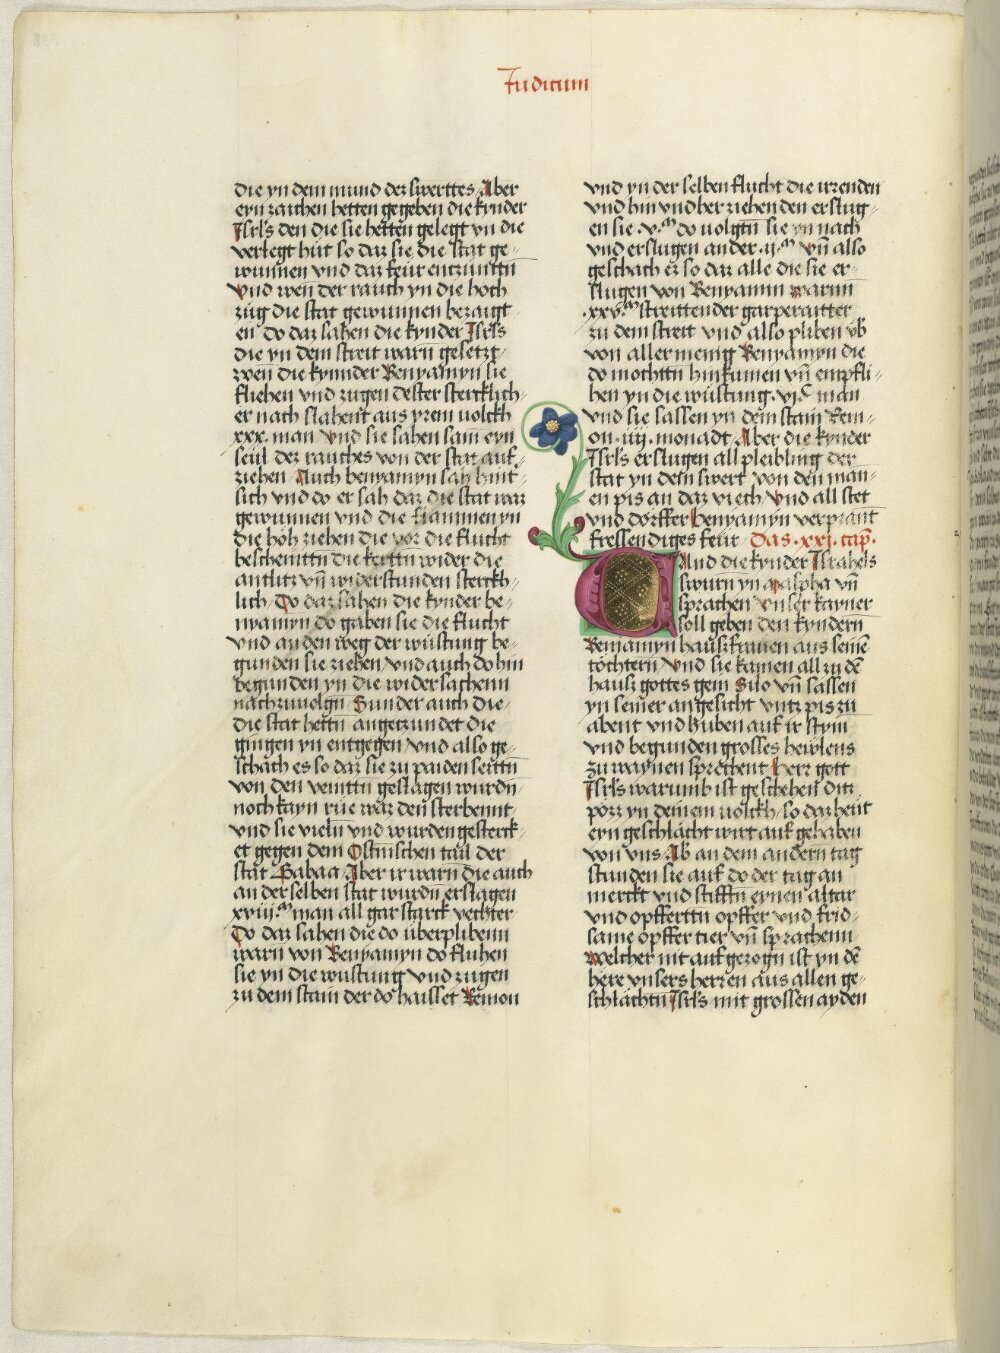 Iudicum
die yn dem mund des swerttes Aber
eyn zaichen hetten gegeben die kynder
Isrls den die sie hetten gelegt yn die
verlegt hut so das sie die stat ge-
wunnen vnd das feur entzunttn
Vnd wen der rauch yn die hoch
zug die stat gewunnen bezaigt-
en do das sahen die kynder Isrls
die yn dem streit warn gesetzt-
wen die kynnder Benyamyn sie
fliehen vnd zugen dester stercklich-
er nach slahent aus yrem volckh
xxx. man Vnd sie sahen sam eyn
seul des rauches von der stat auf-
ziehen Auch benyamyn sah hint-
sich vnd do er sah das die stat was
gewunnen vnd die flammen yn
die hoh ziehen die vor die flucht
beschemttn die kerttn wider die
antlutz vn widerstunden sterckh-
lich Do das sahen die kynder be-
nyamyn do gaben sie die flucht
vnd an den weg der wustung be-
gunden sie ziehen vnd auch do hin
begunden yn die widersachenn
nachzuuolgn Sunder auch die-
die stat hettn angetzundet die
gingen yn entgegen vnd also ge-
schach es so das sie zu paiden seittn
von den veinttn geslagen wurdn
noch kayn rue was den sterbennt
vnd sie vieln vnd wurden gesterck-
et gegen dem Ostnischen tail der
stat Gabaa Aber ir warn die auch
an der selben stat wurdn erslagen
xviij.m man all gar starck vechter
Do das sahen die do uberplibenn
warn von Benyamyn do fluhen
sie yn die wustung vnd zugen
zu dem stain der do haisset Remon
vnd yn der selben flucht die irrenden
vnd hin vnd her ziehenden erslug-
en sie .v.m do uolgtn sie yn nach
vnd erslugen ander .ij.m vn also
geschach es so das alle die sie er-
slugen von Benyamin warnn
.xxv.m streittender garperaitter
zu dem streit vnd also pliben vb
von aller menig Benyamyn die
do mochttn hinkumen vn empfli-
hen yn die wustung .vi.c man
vnd sie sassen yn dem stain Rem-
on .iiij. monadt Aber die kynder
Isrls erslugen all pleibling der
stat yn dem swert von den man-
en pis an das viech Vnd all stet
vnd dorffer benyamyn verprant
fressendiges feur Das .xxj. cap.
And die kynder Israhels
swurn yn maspha vn
sprachen Vnser kayner
soll geben den kyndern
Benjamyn hauszfrauen aus seine
tochtern Vnd sie kamen all zu de
hausz gottes gem Silo vn sassen
yn seiner angesicht vntz pis zu
abent vnd huben auf ir stym
vnd begunden grosses hewlens
zu waynen sprechent herr gott
Isrls warumb ist geschehen ditz
pozz yn deinem volckh so das heut
eyn geschlächt wirt auf gehaben
von vns Ab an dem andern tag
stunden sie auf do der tag an
merckt vnd stifftn eynen altar
vnd opfferttn opffer vnd frid-
same opffer tier vn sprachenn
Welcher nit auf gezogn ist yn de
here vnsers herren aus allen ge-
schlachtn Isrls mit grossen ayden